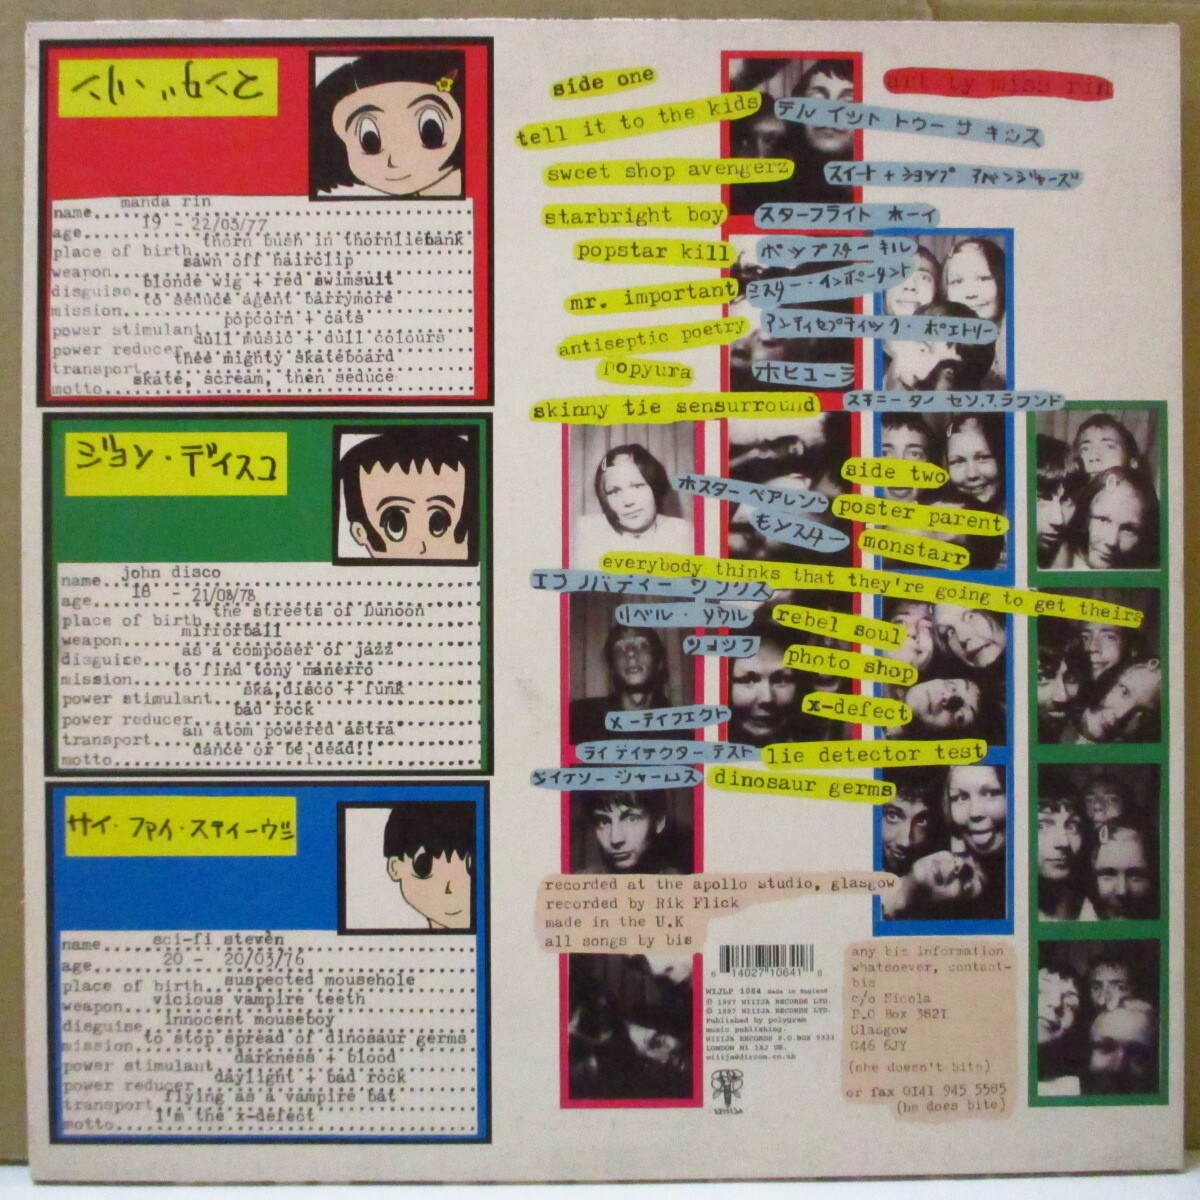 name...manda rin
age...19 - 22/03/77
place of birth...thorn bush in thornliebank
weapon...sawn off hairclip
disguise...blonde wig + red swimsuit
mission...to seduce agent barrymore
power stimulant...popcorn + cats
power reducer...dull music + dull colours
transport...thee mighty skateboard
motto...skate, scream, then seduce
ジョン・ディスコ
name...john disco
age...18 - 21/08/78
place of birth...the streets of Dunoon
weapon...mirrorball
disguize...as a composer of jazz
mission...to find tony manerro
power stimulant...ska,disco + funk
power reducer...bad rock
transport...an atom powered astra
motto...dance or be dead!!
サイ・ファイ・スティーヴン
name...sci-fi steven
age...20 - 20/03/76
place of birth...suspected mousehole
weapon...vicious vampire teeth
disguise...innocent mouseboy
mission...to stop spread of dinosaur germs
power stimulant...darkness + blood
power reducer...daylight + bad rock
transport...flying as a vampire bat
motto...I'm the x-defect
side one
art by mish rin
tell it to the kids テル イット トゥー ザ キッズ
sweet shop avengerz スイート + ショップ アベンジャーズ
starbright boy スターブライト ボーイ
popstar kill ポップスター キル
mr. important ミスター・インポータント
antiseptic poetry アンティセプティック・ポエトリー
popyura ポピューラ
skinny tie sensurround
side two
ポスター ペアレント poster parent
モンスター monstarr
everybody thinks that they're going to get theirs
リベル・ソウル rebel soul
photo shop
x-ディフェクト x-defect
ライ ディテクター テスト lie detector test
dinosaur germs
recorded at the apollo studio, glasgow
recorded by Rik Flick
made in the U.K
all songs by bis
6 14027 10641 8
WIJLP 1064 made in England
℗ 1997 WIIIJA RECORDS LTD.
© 1997 WIIIJA RECORDS LTD.
Published by polygram
music publishing.
WIIIJA RECORDS P.O.BOX 9333
LONDON N1 1AJ UK.
wiiija@dircon.co.uk
any bis information
whatsoever, contact-
bis
c/o Nicola
P.O Box 3821
Glasgow
G46 6JY
(she doesn't bite)
or fax 0141 945 5585
(he does bite)